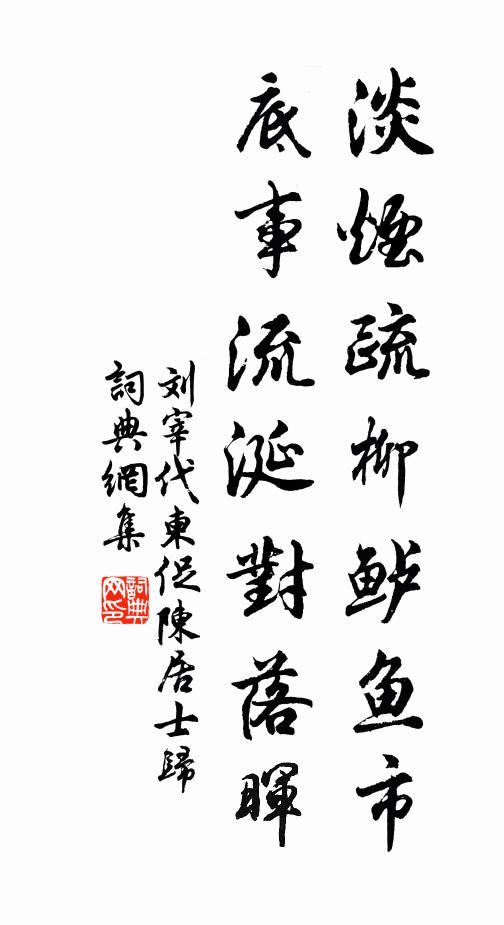 淡煙疏柳鲈鱼市
底事流涎對落暉
刘宰代柬促陳居士歸
詞典網集
詞典网印